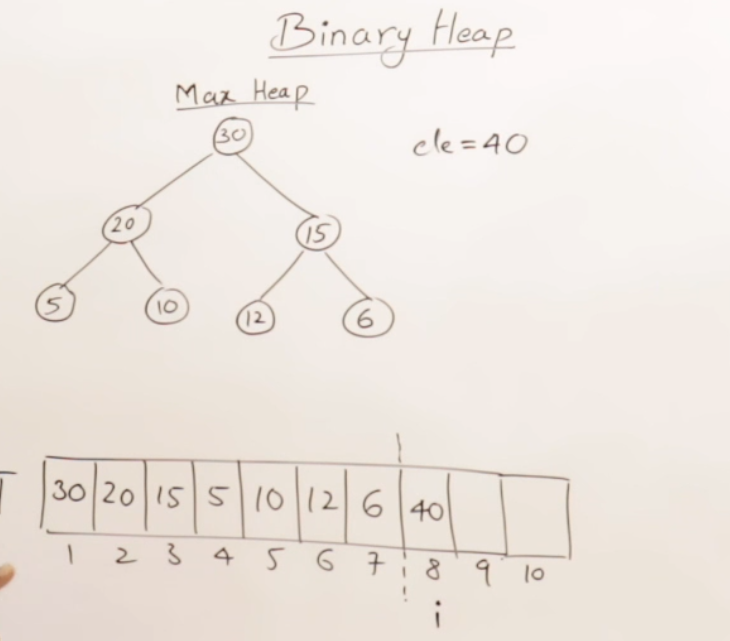 Binary Heap
Max Heap
30
ele=40
20 15
5 10 12 6
30 20 15 5 10 12 6 40
1 2 3 4 5 6 7 8 9 10
i